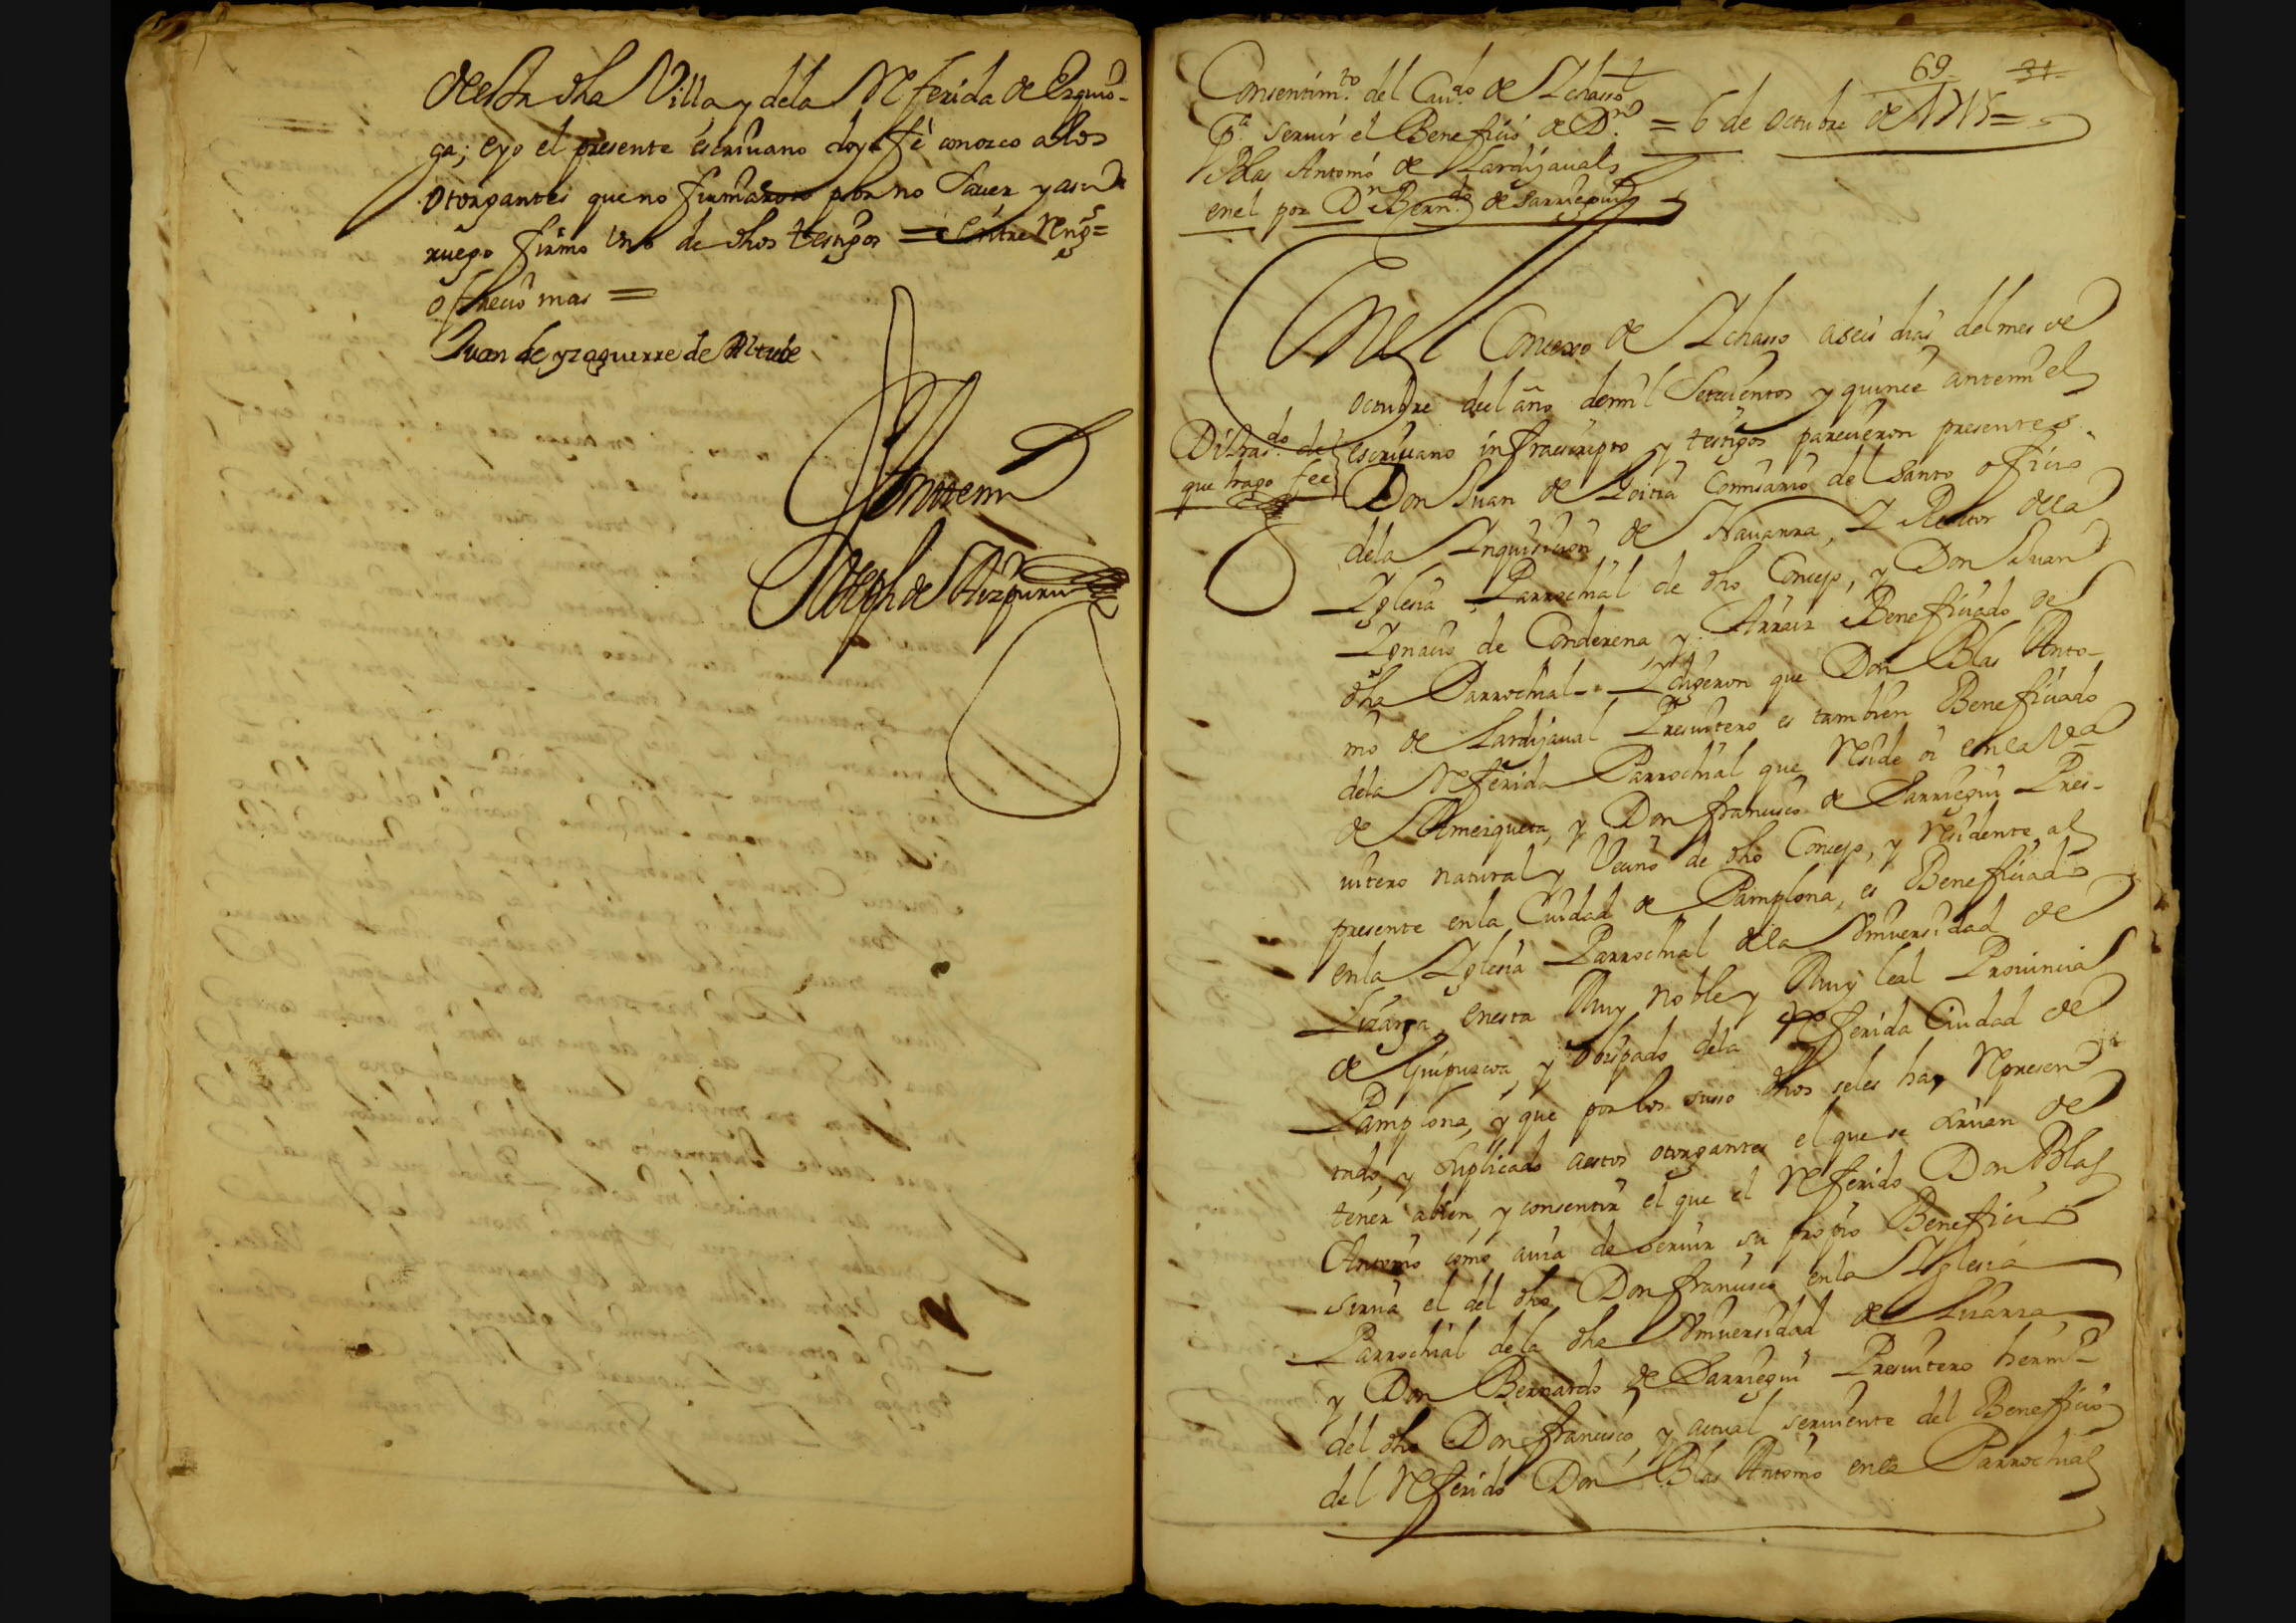 de esta dha Villa y dela Referida de Ezquio-
ga; eyo el presente escriuano doy fè conozco alos
otorgantes que no firmaron por no sauer y asu
ruego firmo vno de dhos testigos = Entre Reng.s =
ofrecio mas =
Juan de yzaguirre de Altube
Antemi
Joseph de Aizpuru
69 31
Consentim.to del Cau.do de Ichasso
p.a seruir el Beneficio de D.n = 6 de octubre de 1715 =
Blas Antonio de Lardizaual,
enel por D.n Bern.do de Sarriegui
Enel Concexo de Ichasso aseis dias del mes de
octubre del año demil Setecientos y quince antemi el
Di tras.do de
que hago fee
escriuano infraescripto y testigos parecieron presentes
Don Juan de Loitia Comisario del Santo oficio
dela Inquisicion de Nauarra, I Rector dela
Iglesia Parrochial de dho Concejo, y Don Juan
Ignacio de Conderena y Arraiz Beneficiado de
dha Parrochial - I digeron que Don Blas Anto-
nio de Lardizaual Presuitero es tambien Beneficiado
dela Referida Parrochial que Reside oi enla V.a
de Amezqueta, y Don francisco de Sarriegui Pres-
uitero natural y Vecino de dho Concejo, y Residente al
presente enla Ciudad de Pamplona, es Beneficiado
enla Iglesia Parrochial dela Vniuersidad de
Lizarza, enesta Muy noble y Muy leal Prouincia
de Guipuzcoa, y obispado dela Referida Ciudad de
Pamplona, y que por los susso dhos seles hay Represen-
tado, y suplicado aestos otorgantes el que se siruan de
tener abien, y consentir el que el Referido Don Blas
Antonio como auia de seruir su propio Beneficio
sirua el del dho Don francisco enla Iglesia
Parrochial dela dha Vniuersidad de Lizarza,
y Don Bernardo de Sarriegui Presuitero herm.o
del dho Don francisco, y actual seruiente del Beneficio
del Referido Don Blas Antonio enla Parrochial